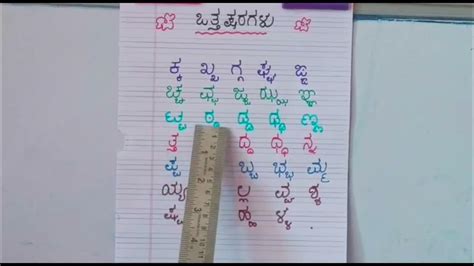 ಒತ್ತಕ್ಷರಗಳು
ಕ್ಕ ಖ್ಖ ಗ್ಗ ಘ್ಘ ಙ್ಙ
ಚ್ಚ ಛ್ಛ ಜ್ಜ ಝ್ಝ ಞ್ಞ
ಟ್ಟ ಠ್ಠ ಡ್ಡ ಢ್ಢ ಣ್ಣ
ತ್ತ ದ್ದ ಧ್ಧ ನ್ನ
ಪ್ಪ ಬ್ಬ ಭ್ಭ ಮ್ಮ
ಯ್ಯ ಲ್ಲ ವ್ವ ಶ್ಶ
ಷ್ಷ ಹ್ಹ ಳ್ಳ